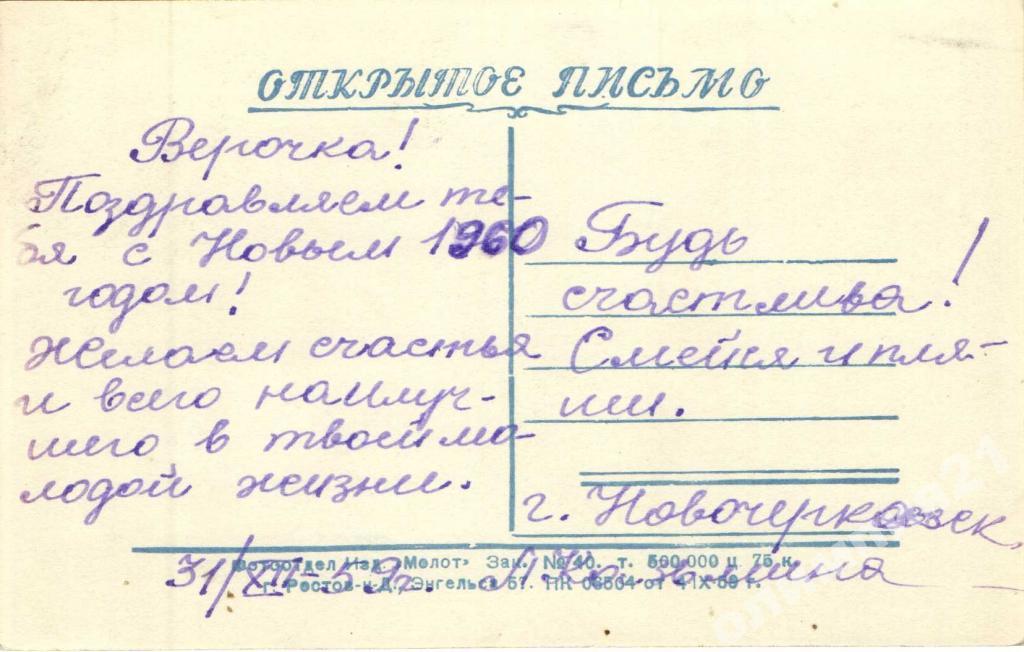 ОТКРЫТОЕ ПИСЬМО
Верочка!
Поздравляем те-
бя с Новым 1960
годом!
Желаем счастья
и всего наилуч-
шего в твоей мо-
лодой жизни.
Будь
счастлива!
Смейся и пля-
ши.
г. Новочеркасск
31/XII-59г.
Фотоотдел Изд. "Молот" Зак. № 40. т. 500.000 ц. 75 к.
г. Ростов-н-Д., Энгельса 57. ПК 08504 от 4 IX-59 г.